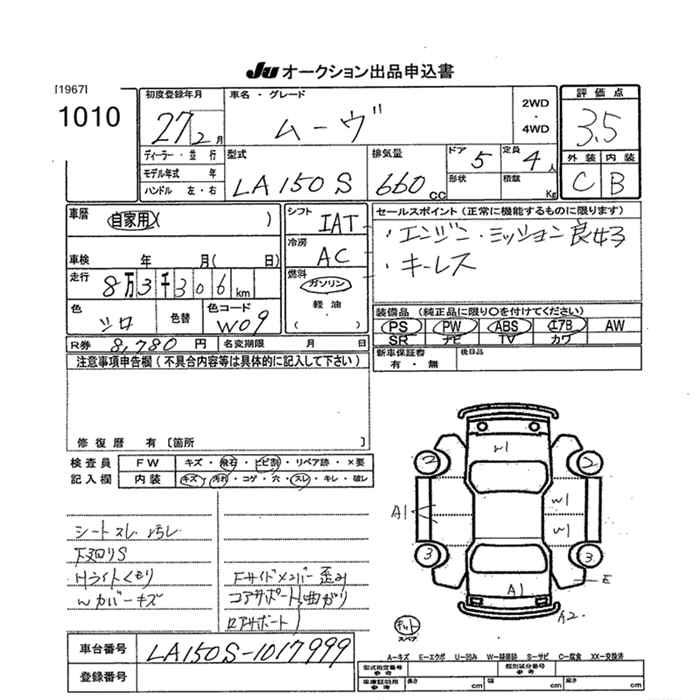 JU オークション出品申込書
[1967]
1010
初度登録年月 27 2月
車名・グレード ムーヴ
2WD・4WD
評価点 3.5
外装 C 内装 B
ディーラー・並行
モデル年式 年
ハンドル 左・右
型式 LA150S
排気量 660cc
ドア 5 定員 4人
形状 積載 Kg
車歴 自家用( )
車検 年 月( 日)
走行 8万3千306km
色 シロ 色替 色コード W09
シフト IAT
冷房 AC
燃料 ガソリン
軽油
( )
セールスポイント(正常に機能するものに限ります)
・エンジン・ミッション良好
・キーレス
装備品(純正品に限り○を付けてください)
PS PW ABS エアB AW
SR ナビ TV カワ
R券 8,780円 名変期限 月 日
新車保証書 有・無 後日品
注意事項申告欄(不具合内容等は具体的に記入して下さい)
修復歴 有[箇所 ]
検査員 FW キズ・飛石・ヒビ割・リペア跡・×要
記入欄 内装 キズ・汚れ・コゲ・穴・スレ・キレ・破レ
シートスレ 汚レ
下廻りS
Hライトくもり
Wカバーキズ
Fサイドメンバー歪み
コアサポート曲がり
ロアサポート
W1
2 2
A1 W1
W1
3 3
E
A1
A2
キット
スペア
A-キズ E-エクボ U-凹み W-補修跡 S-サビ C-腐食 XX-交換済
車台番号 LA150S-1017999
登録番号
型式指定番号 参考 類別区分番号 参考
車庫証明用 参考 長さ cm 幅 cm 高さ cm